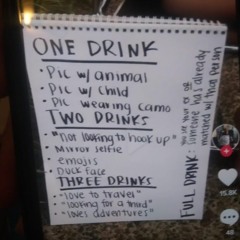 ONE DRINK
• Pic w/ animal
• Pic w/ child
• Pic wearing camo
TWO DRINKS
• "not looking to hook up"
• Mirror selfie
• emojis
• Duck face
THREE DRINKS
• "love to travel"
• "looking for a third"
• "loves adventures"
FULL DRINK: You see your ex OR
someone has already
matched w/ that person
15.8K
48